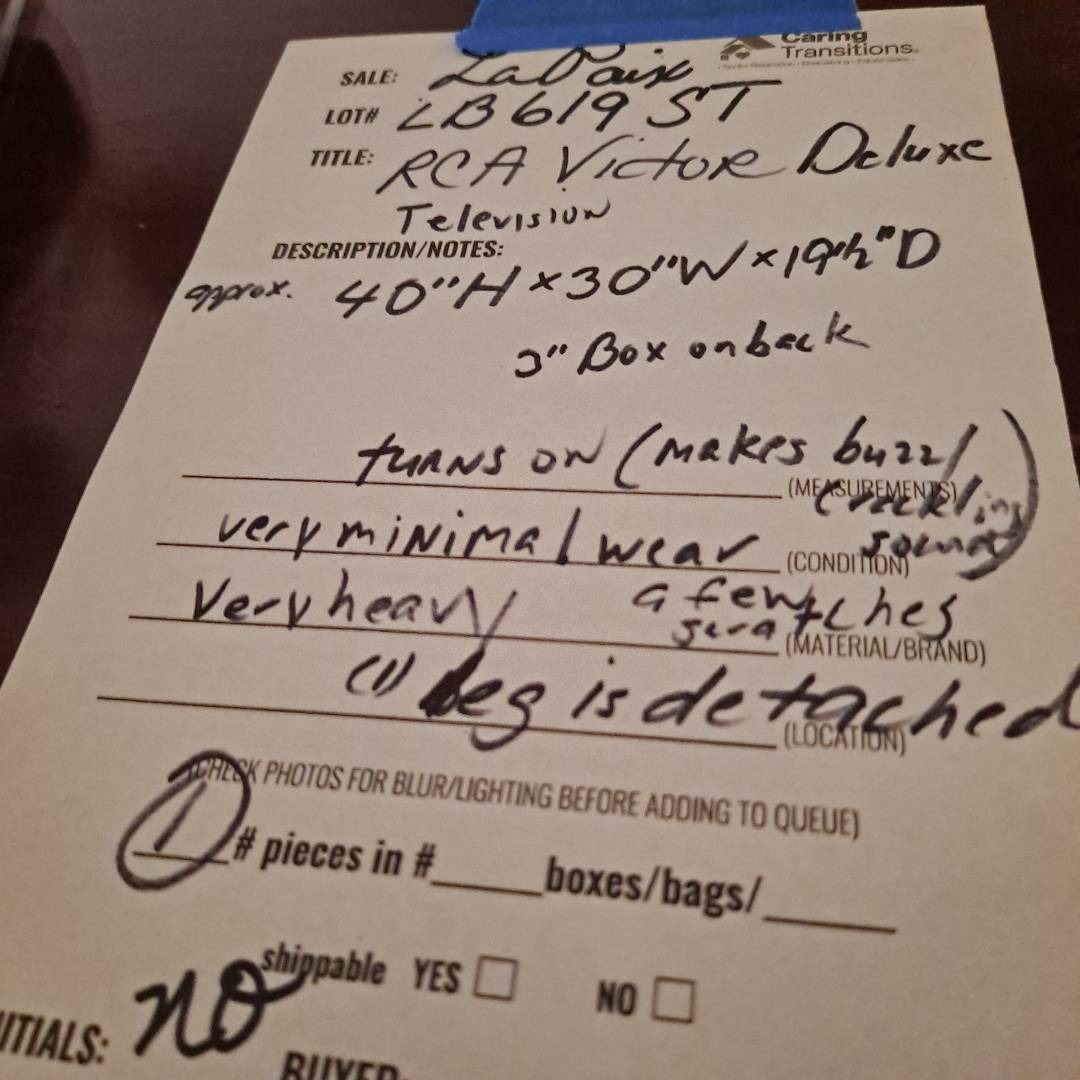 Caring
Transitions.
SALE: LaPaix
LOT# LB 619 ST
TITLE: RCA Victor Deluxe
Television
DESCRIPTION/NOTES:
approx. 40"H x 30"W x 19½"D
3" Box on back
turns on (makes buzz/
crackling
sound)
(MEASUREMENTS)
very minimal wear (CONDITION)
Very heavy a few
scratches
(MATERIAL/BRAND)
(1) leg is detached
(LOCATION)
(CHECK PHOTOS FOR BLUR/LIGHTING BEFORE ADDING TO QUEUE)
1 # pieces in #____ boxes/bags/____
shippable YES ☐ NO ☐
ITIALS: no
BUYER